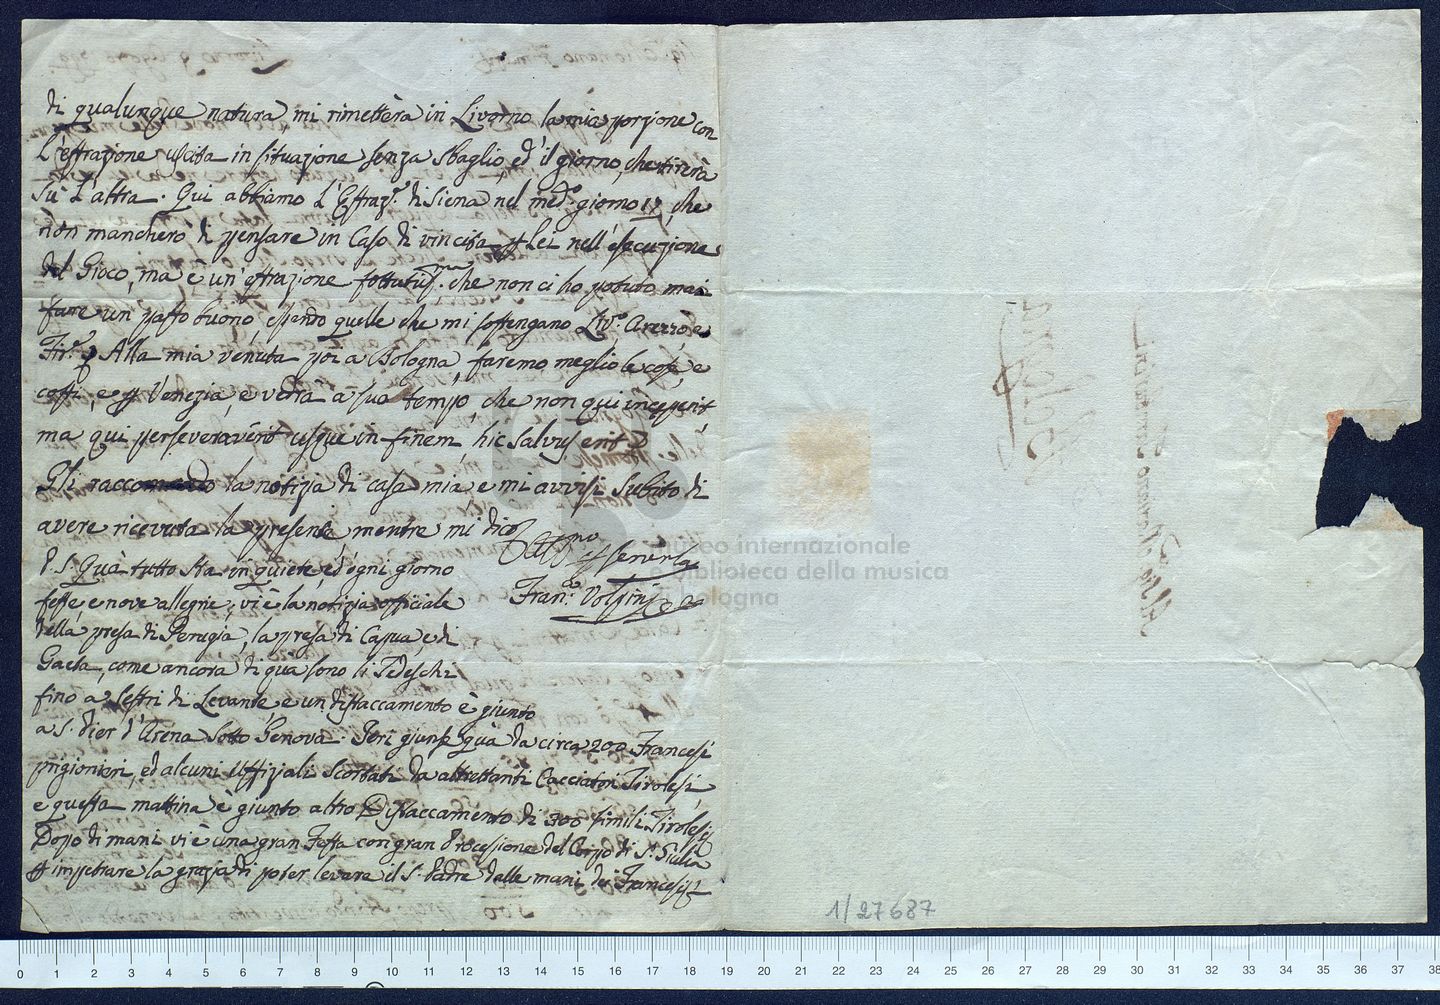 di qualunque natura mi rimetterà in Livorno la mia porzione con
L'estrazione uscita in situazione senza sbaglio, ed il giorno, che tirerà
sù l'altra. Qui abbiamo L'Estraz.e di Siena nel med.o giorno 17, che
non mancherò di pensare in Caso di vincita p Lei nell'esecuzione
del Gioco, ma è un'estrazione che non ci ho potuto mai
fare un passo buono, essendo quelle che mi sostengano Liv.o Arezzo, e
Fir.e Alla mia venuta poi a Bologna, faremo meglio le cose, e
costì, e p Venezia, e vedrà a suo tempo, che non qui inceperit
ma qui perseveraverit usque in finem hic salvus erit
Gli raccomando la notizia di casa mia e mi avvisi subito di
avere ricevuta la presente mentre mi dico
P.S. Quà tutto stà in quiete, ed ogni giorno
feste e nove allegrie; vi è la notizia officiale
della presa di Perugia, la presa di Capua, e di
Gaeta, come ancora di quà sono li Tedeschi
fino a Sestri di Levante e un distaccamento è giunto
a S. Pier d'Arena sotto Genova. Ieri giunse quà da circa 200 Francesi
prigionieri, ed alcuni Uffiziali scortati da altrettanti Cacciatori Tirolesi
e questa mattina è giunto altro Distaccamento di 300 simili Tirolesi
Dopo dimani vi è una gran Festa con gran Processione del Corpo di S.a Giulia
p impetrare la grazia di poter levare il S. Padre dalle mani dei Francesi
Fran.co Volpini
1/27687
museo internazionale
e biblioteca della musica
di bologna
0 1 2 3 4 5 6 7 8 9 10 11 12 13 14 15 16 17 18 19 20 21 22 23 24 25 26 27 28 29 30 31 32 33 34 35 36 37 38